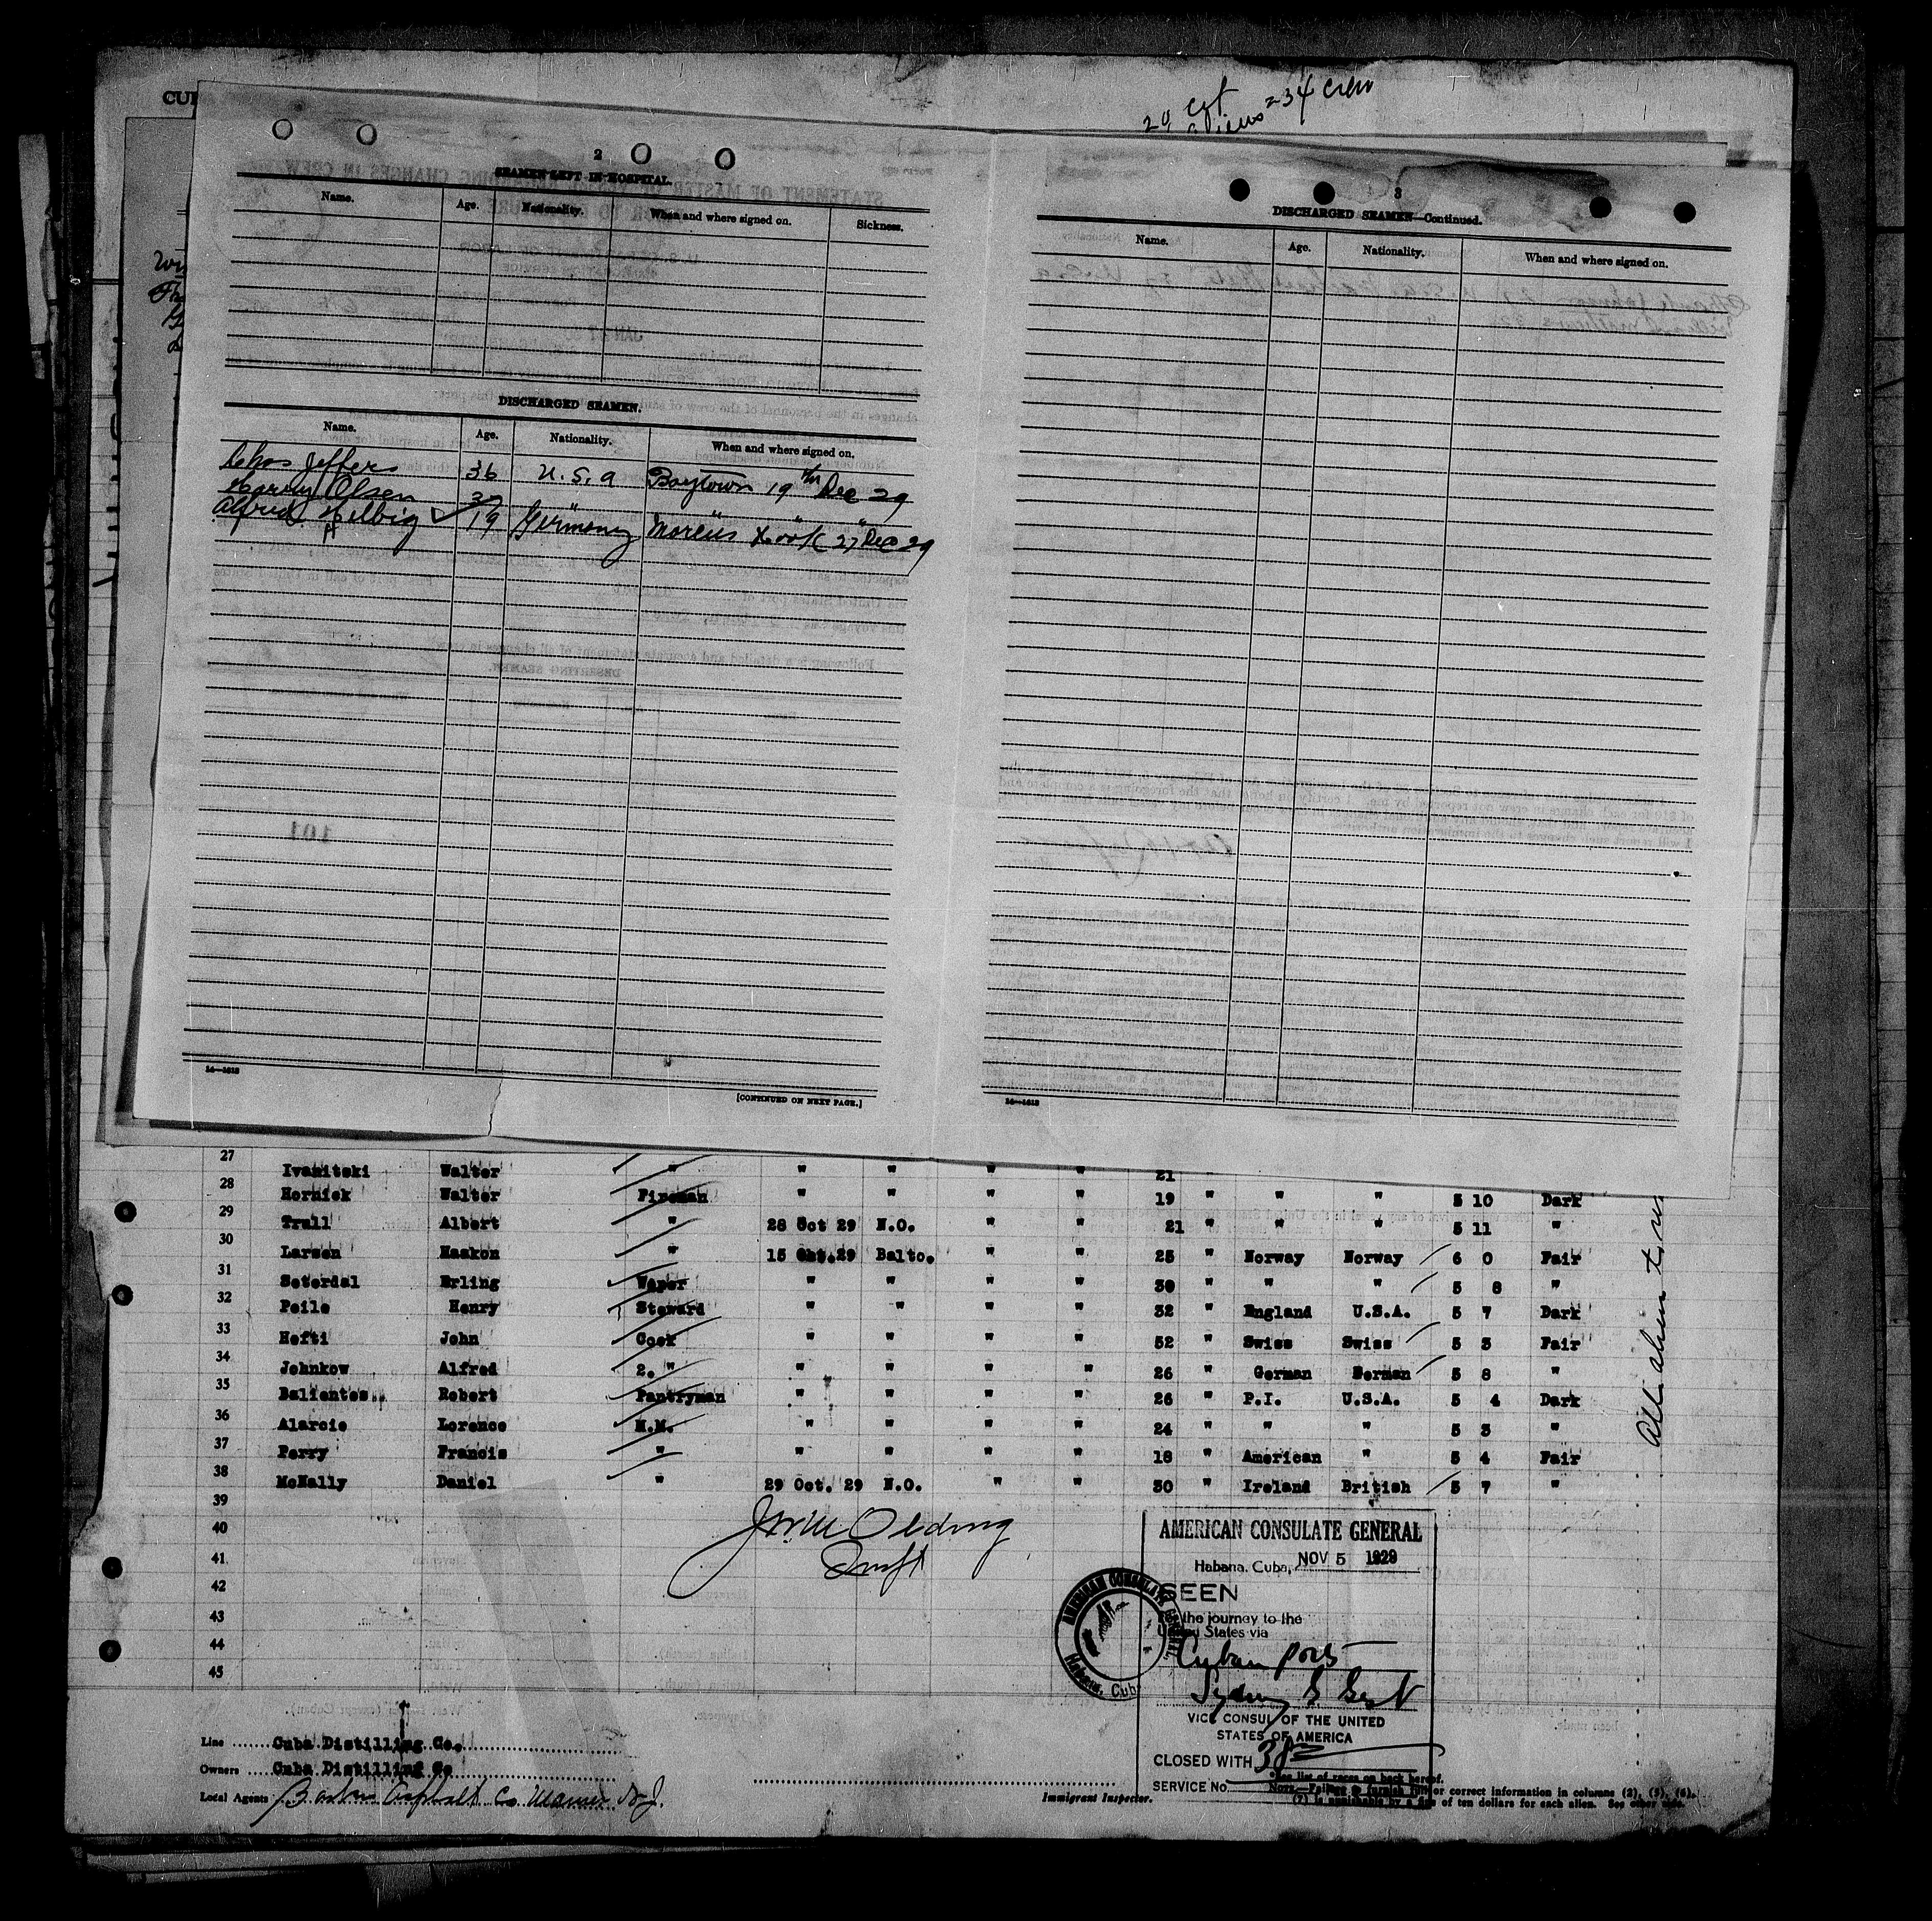 29 cit = 34 crew
2
SEAMEN LEFT IN HOSPITAL.
Name. Age. Nationality. When and where signed on. Sickness.
DISCHARGED SEAMEN.
Name. Age. Nationality. When and where signed on.
Chas Jeffers 36 U.S.A Baytown 19th Dec 29
Harry Olsen 37 " " "
Alfred Helbig 19 Germany Marcus Hook 27 Dec 29
14—1618
[CONTINUED ON NEXT PAGE.]
3
DISCHARGED SEAMEN—Continued.
Name. Age. Nationality. When and where signed on.
14—1618
27 Ivanitski Walter " " " " " 21
28 Hornick Walter Fireman " " " " 19 " " " 5 10 Dark
29 Trull Albert " 28 Oct 29 N.O. " " 21 " " " 5 11 "
30 Larsen Haakon " 15 Oct.29 Balto. " " 25 " Norway Norway 6 0 Fair
31 Seterdal Erling Wiper " " " " 30 " " " 5 8 "
32 Peile Henry Steward " " " " 32 " England U.S.A. 5 7 Dark
33 Hefti John Cook " " " " 52 " Swiss Swiss 5 3 Fair
34 Johnkow Alfred 2. " " " " " 26 " German German 5 8 "
35 Balientes.. Robert Pantryman " " " " 26 " P.I. U.S.A. 5 4 Dark
36 Alarcie Lorence M.M. " " " " 24 " " " 5 3 "
37 Perry Francis " " " " " 18 " American " 5 4 Fair
38 McNally Daniel " 29 Oct. 29 N.O. " " 30 " Ireland British 5 7 "
39
40
41
42
43
44
45
AMERICAN CONSULATE GENERAL
Habana, Cuba, NOV 5 1929
SEEN
For the journey to the
United States via
Cuban ports
VICE CONSUL OF THE UNITED
STATES OF AMERICA
CLOSED WITH 38
SERVICE No.
AMERICAN CONSULATE GENERAL
Habana, Cuba
Line Cuba Distilling Co.
Owners Cuba Distilling Co
Local Agents Barber Asphalt Co. N.J.
Immigrant Inspector.
*See list of races on back hereof.
NOTE.—Failure to furnish full or correct information in columns (2), (5), (6),
(7) is punishable by a fine of ten dollars for each alien. See other side.